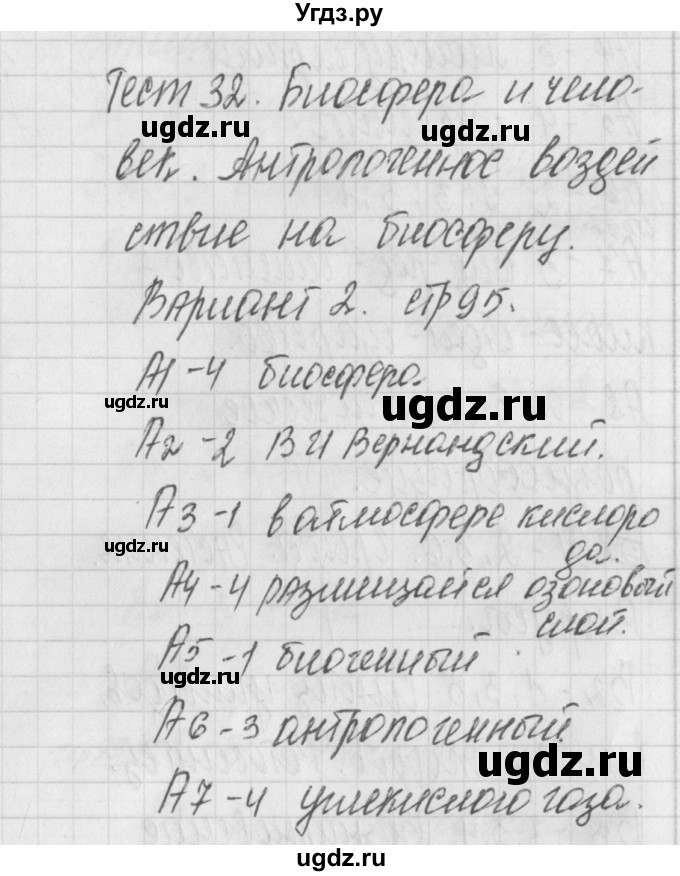 Угдз.ру
Тест 32. Биосфера и чело-
век. Антропогенное воздей
ствие на биосферу.
Вариант 2. стр 95.
А1 - 4 биосфера
А2 - 2 В И Вернандский.
А3 - 1 в атмосфере кислоро
да.
А4 - 4 размищается озоновый
слой.
А5 - 1 биогенный
А6 - 3 антропогенный.
А7 - 4 углекислого газа.
ugdz.ru
ugdz.ru
ugdz.ru
ugdz.ru
ugdz.ru
ugdz.ru
ugdz.ru
ugdz.ru